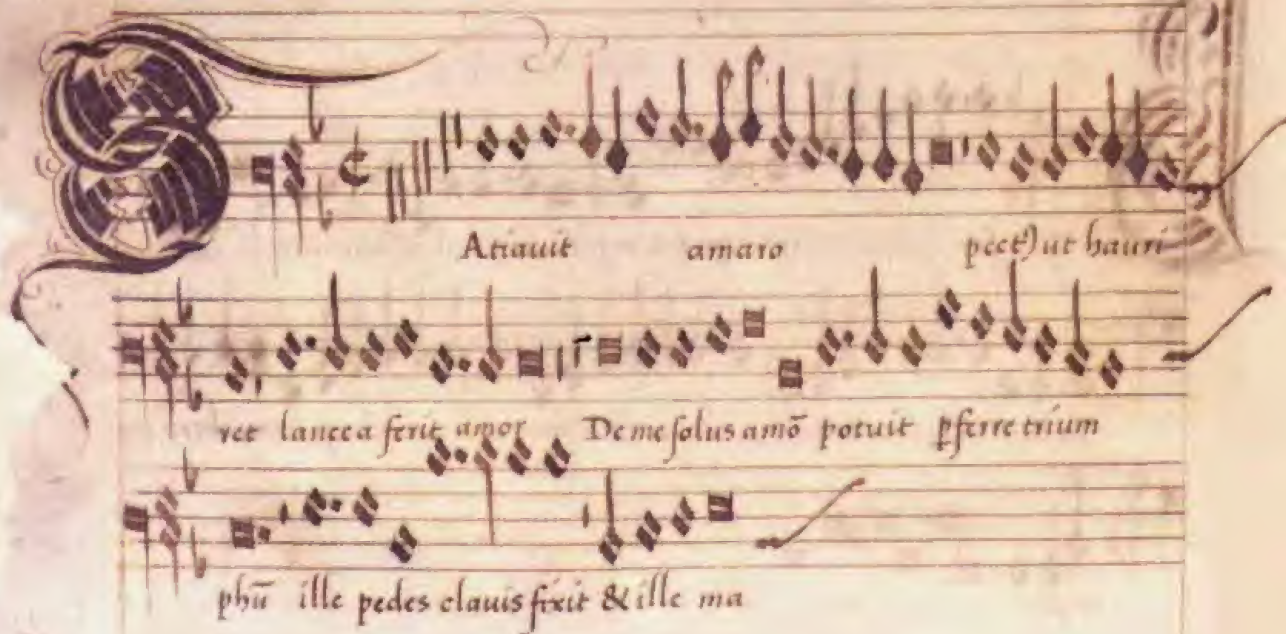 SAtiauit amaro pect) ut hauri
ret lancea ferit amor De me solus amō potuit pferre trium
phū ille pedes clauis fixit & ille ma